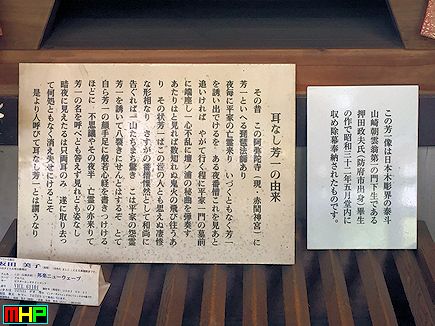 耳なし芳一の由来
その昔 この阿弥陀寺（現、赤間神宮）に
芳一といへる琵琶法師あり
夜毎に平家の亡霊来り いづくともなく芳一
を誘い出でけるを ある夜番僧これを見あと
追いければ やがて行く程に平家一門の墓前
に端座し一心不乱に壇ノ浦の秘曲を弾奏す
あたりはと見れば数知れぬ鬼火の飛び往う
り その状芳一はこの世の人とも思えぬ凄惨
な形相なり さすがの番僧慄然として和尚に
告ぐれば一山たちまち驚き こは平家の怨霊
芳一を誘いて八裂きにせんとはするぞ とて
自ら芳一の顔手足に般若心経を書きつけける
ほどに 不思議やその夜半 亡霊の亦来りて
芳一の名を呼べども答えず見れども姿なし
暗夜に見えたるは只両耳のみ 遂に取り去っ
て何処ともなく消え失せにけるとぞ
是より人呼びて耳なし芳一とは謂うなり
この芳一像は日本木彫界の泰斗
山崎朝雲翁第一の門下生である
押田政夫氏（防府市出身）畢生
の作で昭和三十二年五月堂内に
収め除幕奉納されたものです。
美子
邦楽ニューウェーブ
MHP